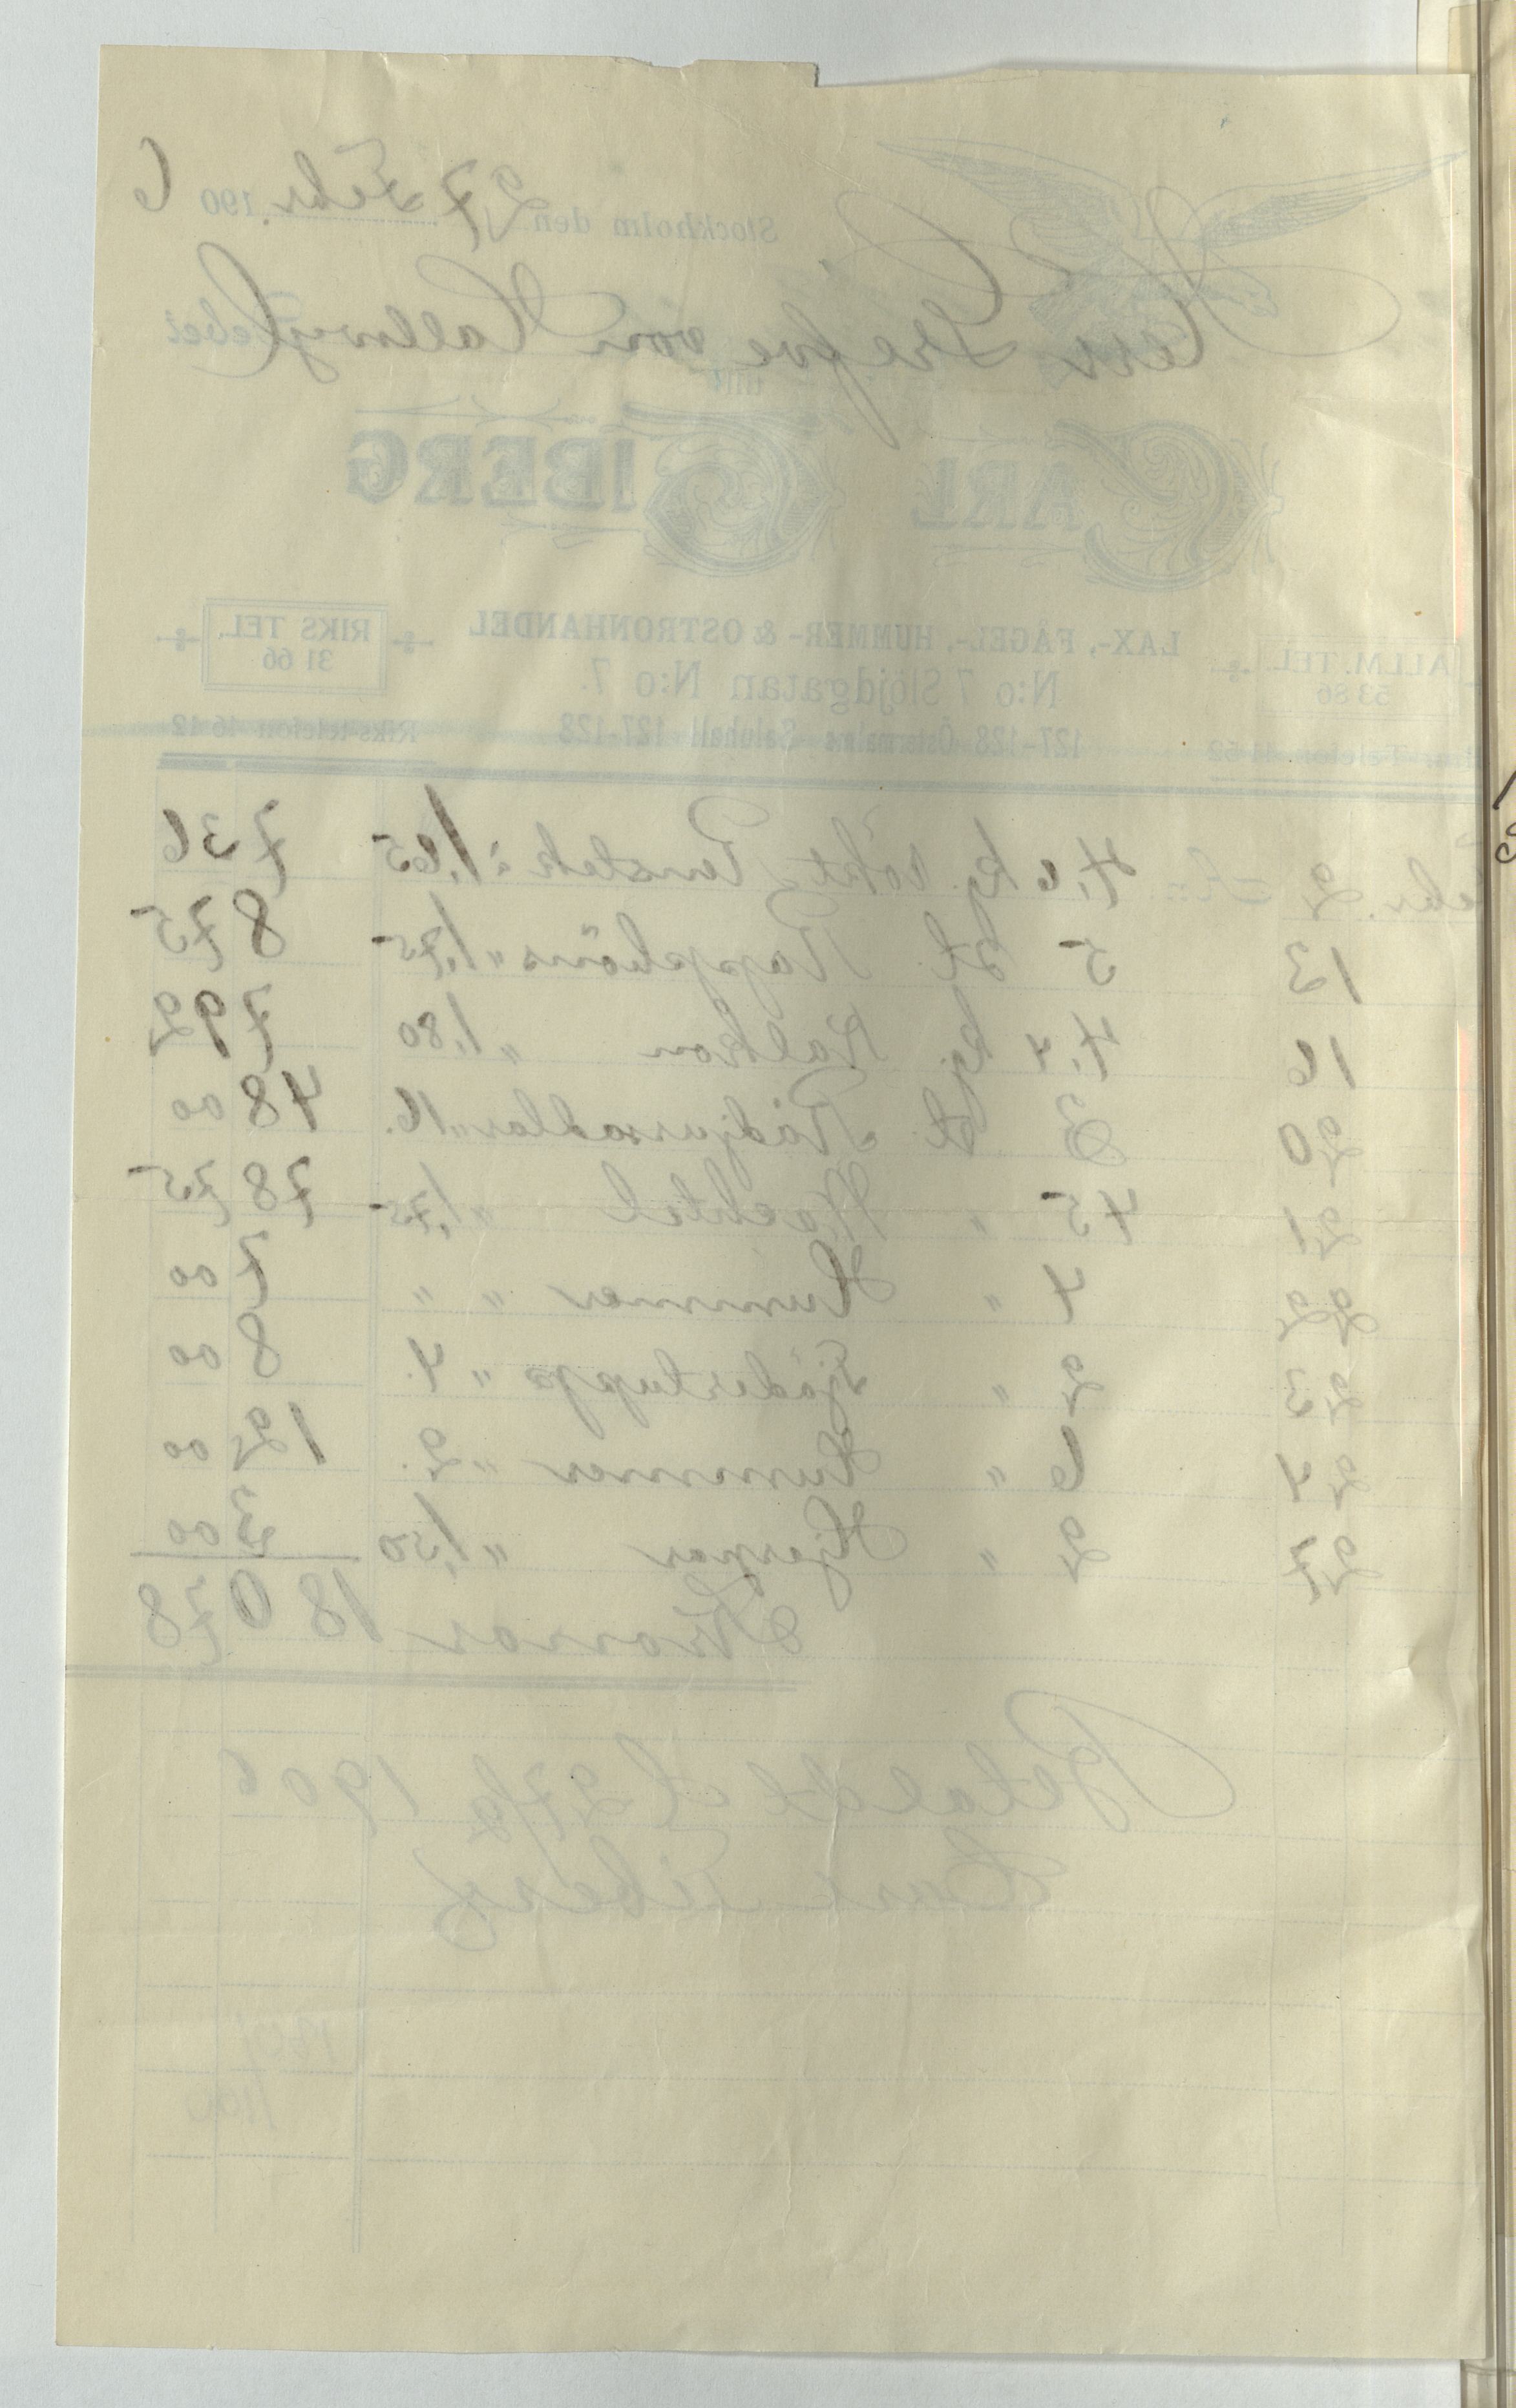 Stockholm den 27 Febr. 1906
Herr Grefve von Hallwyl Debet
till
CARL TIBERG
LAX-, FÅGEL-, HUMMER- & OSTRONHANDEL
ALLM. TEL. 53 86
RIKS TEL. 31 66
N:o 7 Slöjdgatan N:o 7.
127-128 Östermalms Saluhall 127-128
Telefon 11 52
Riks-telefon 16 12
Febr. 2 4,6 kg. rökt Renstek à 1,65 7 36
13 5 st. Rapphöns " 1,75 8 75
16 4,4 kg. Kalkon " 1,80 7 92
20 3 st. Rådjurssadlar " 16. 48 00
21 45 " Wachtel " 1,75 78 75
22 4 " Hummer " " 7 00
23 2 " Tjädertupp " 4. 8 00
24 6 " Hummer " 2. 12 00
27 2 " Hjerpar " 1,50 3 00
Kronor 180 78
Betaldt d 27/2 1906
Carl Tiberg